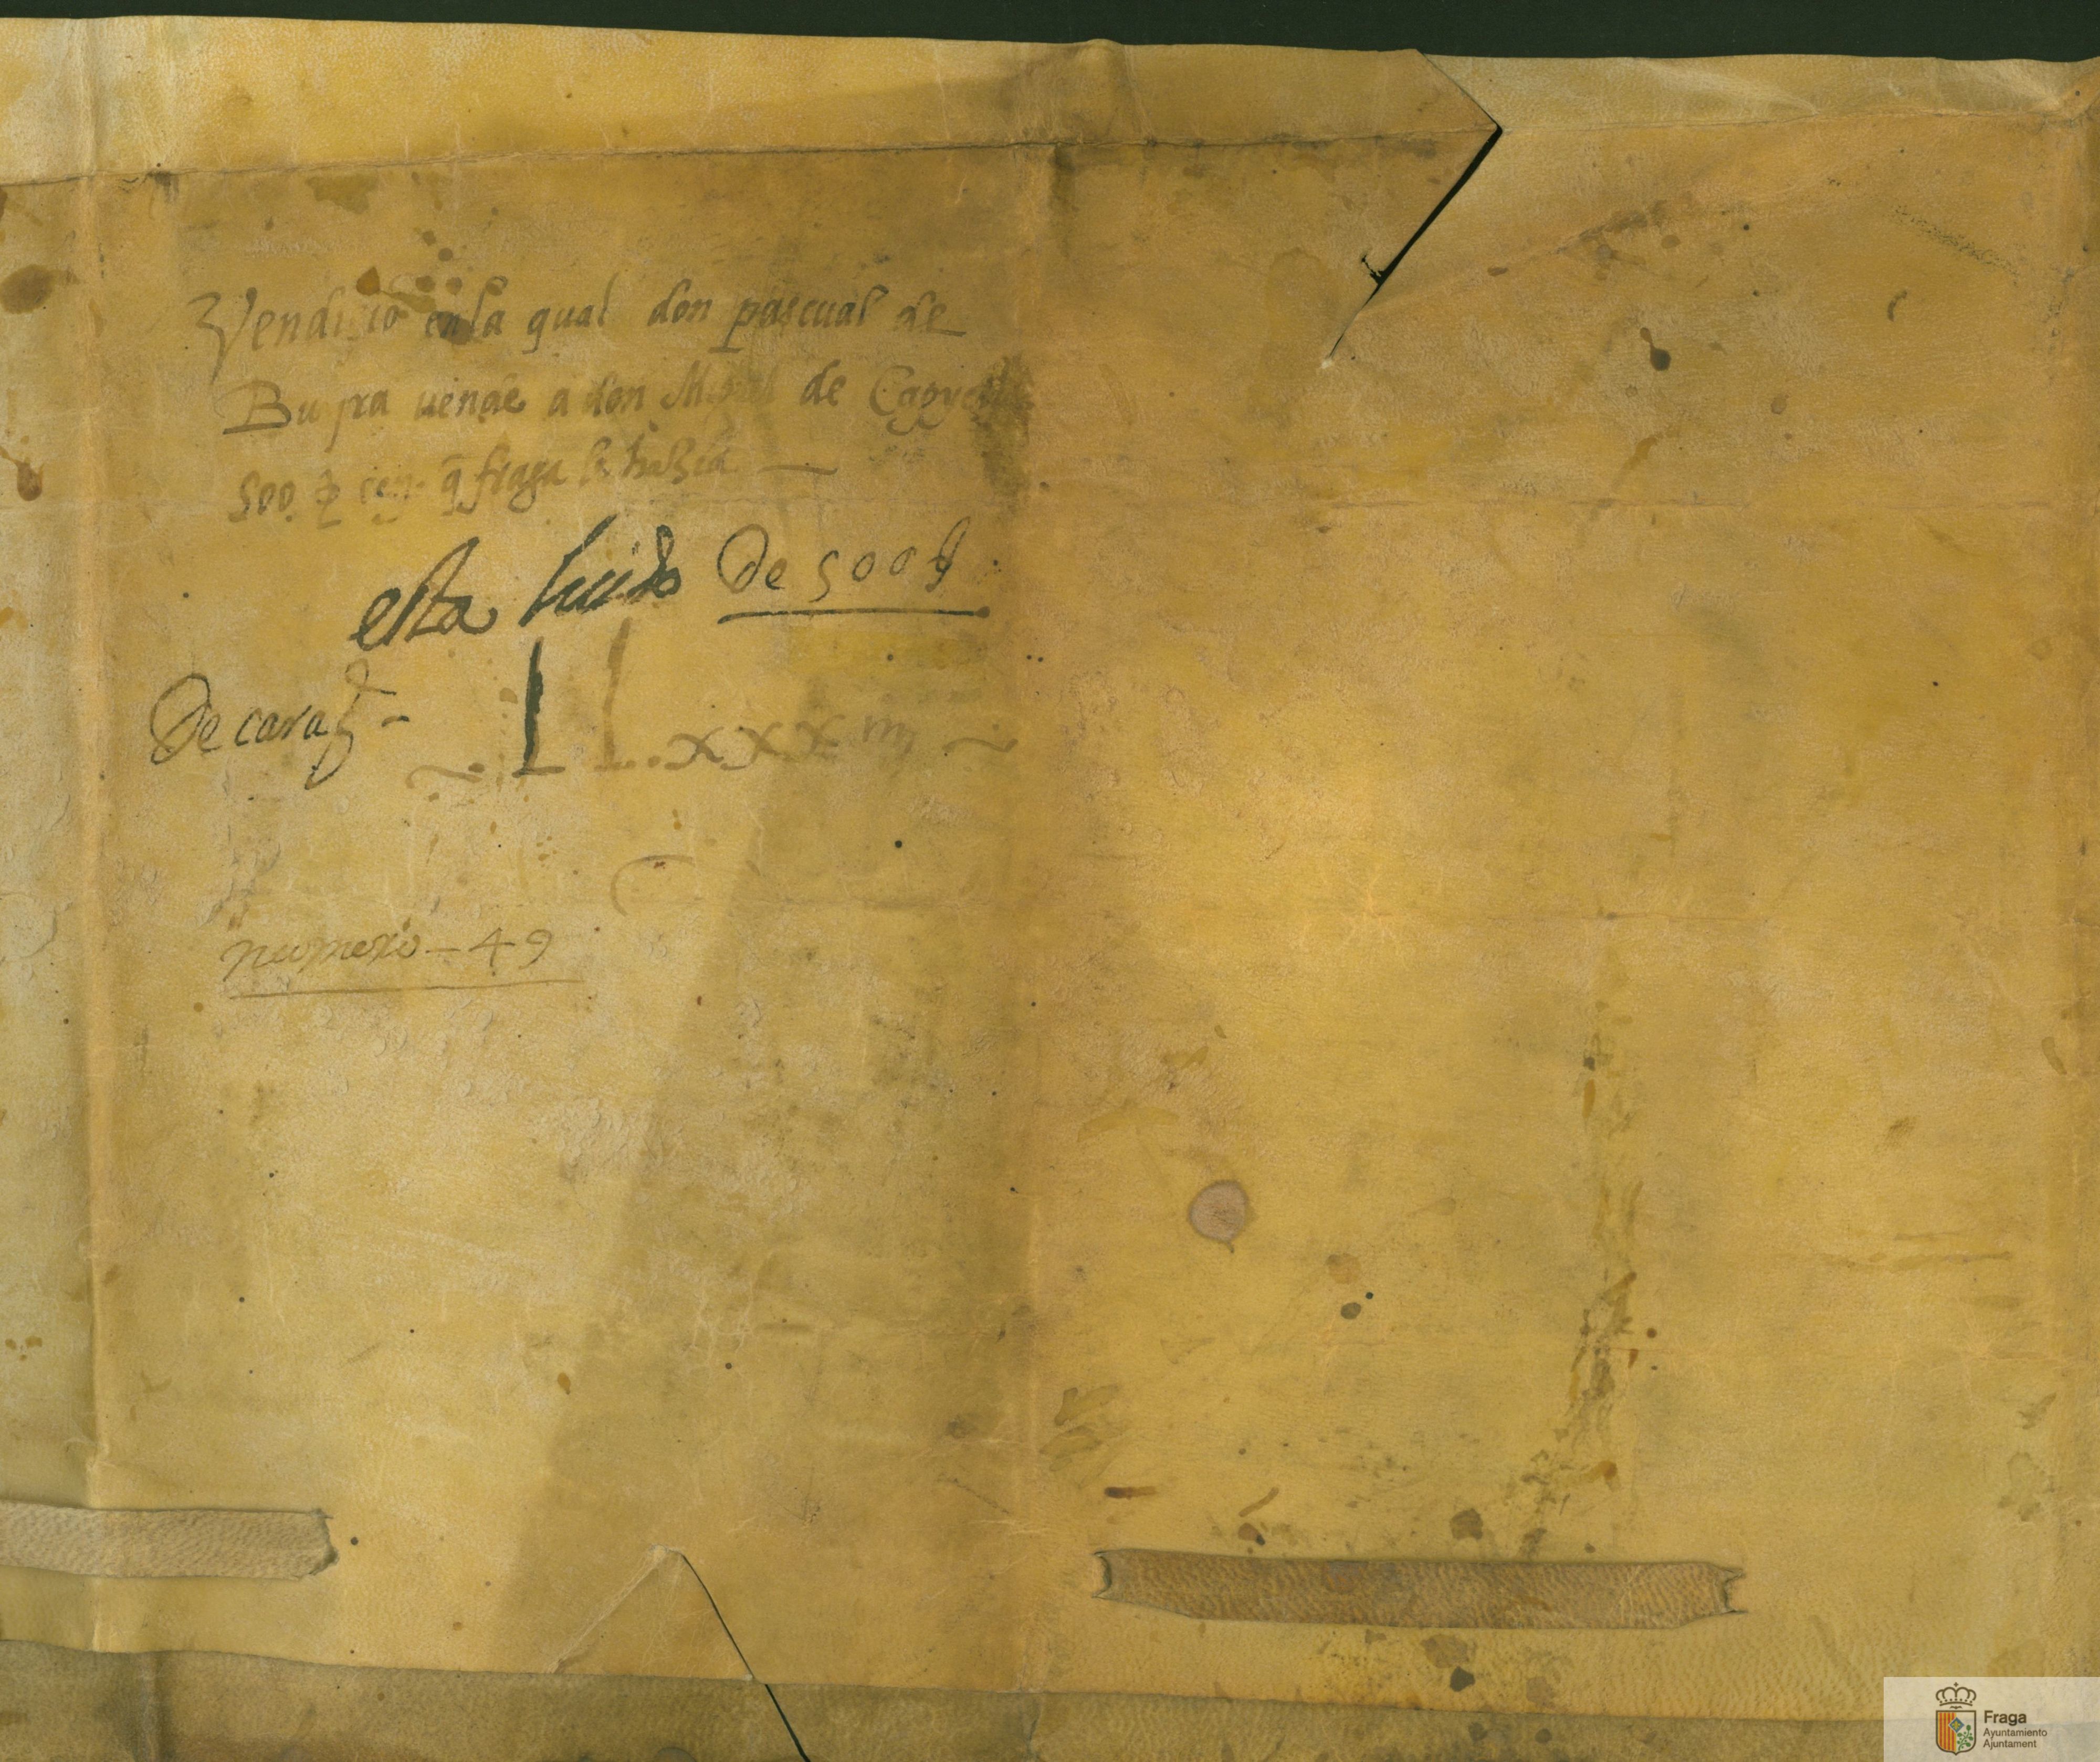 Vendicio en la qual don pascual de
Bu pra uende a don Miguel de
500. q̄ fraga le hazia
esta luido De 500 ſ
De carag
L L . x x x
numero - 49
Fraga
Ayuntamiento
Ajuntament